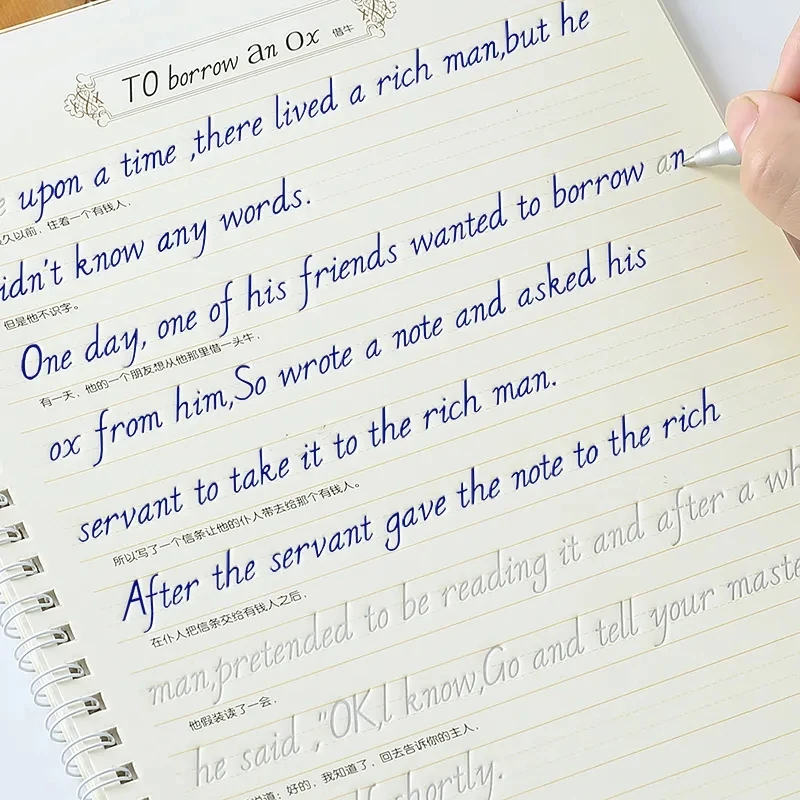 TO borrow an Ox 借牛
upon a time ,there lived a rich man,but he
久以前，住着一个有钱人，
idn't know any words.
但是他不识字。
One day, one of his friends wanted to borrow an
有一天，他的一个朋友想从他那里借一头牛，
ox from him,So wrote a note and asked his
servant to take it to the rich man.
所以写了一个信条让他的仆人带去给那个有钱人。
After the servant gave the note to the rich
在仆人把信条交给有钱人之后，
man,pretended to be reading it and after a wh
他假装读了一会，
he said ,"OK,l know,Go and tell your maste
说道：好的，我知道了，回去告诉你的主人，
shortly.